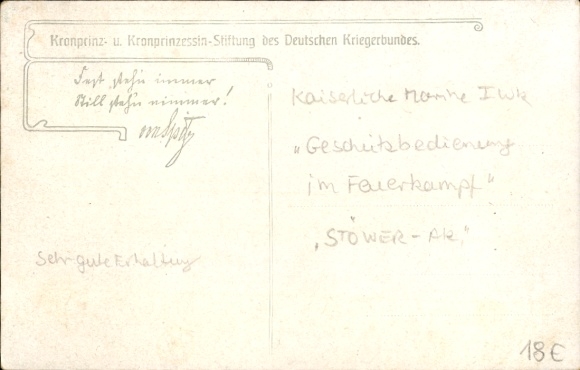 Kronprinz- u. Kronprinzessin-Stiftung des Deutschen Kriegerbundes.
Fest stehn immer
Still stehn nimmer!
von Spitz
Kaiserliche Marine I WK
„Geschützbedienung
im Feuerkampf"
„STÖWER-AK."
Sehr gute Erhaltung
18€